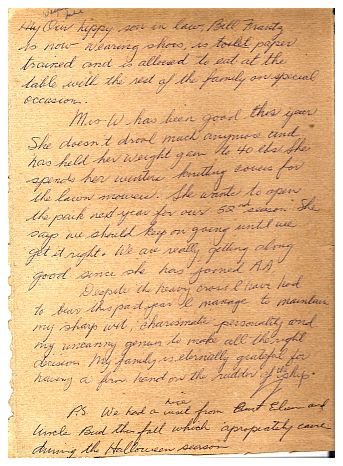 My Our hippy son in law, Bill Frantz
is now wearing shoes, is toilet paper
trained and is allowed to eat at the
table with the rest of the family on special
occasion.
Mrs W. has been good this year
She doesn't drool much anymore and
has held her weight gain to 40 lbs. She
spends her winters knitting covers for
the lawn mowers. She wants to open
the park next year for our 52nd season. She
says we should keep on going until we
get it right. We are really getting along
good since she has joined AA
Despite the heavy cross I have had
to bear this past year I manage to maintain
my sharp wit, charismatic personality and
my uncanny genius to make all the right
decision. My family is eternally grateful for
having a firm hand on the rudder of the ship.
P.S. We had a nice visit from Aunt Elsie and
Uncle Bud this fall which apropiately came
during the Halloween season